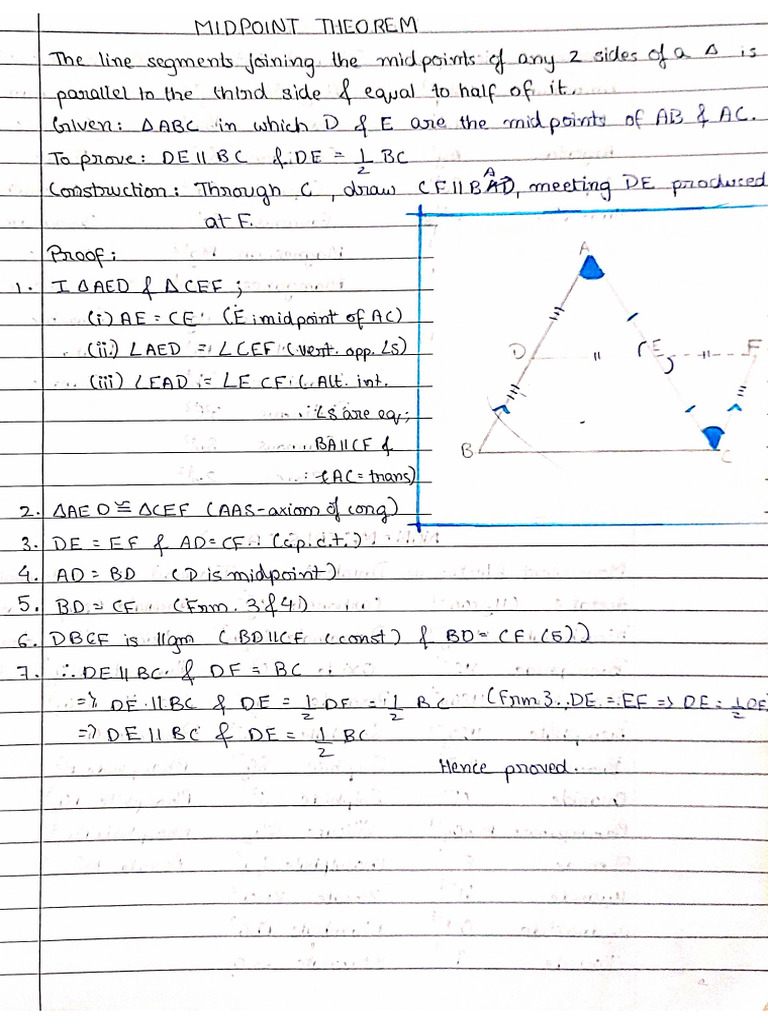 MIDPOINT THEOREM
The line segments joining the midpoints of any 2 sides of a Δ is
parallel to the third side & equal to half of it.
Given: ΔABC in which D & E are the midpoints of AB & AC.
To prove: DE || BC & DE = 1/2 BC
Construction: Through C, draw CF || BA, meeting DE produced
at F.
Proof:
1. I ΔAED & ΔCEF;
(i) AE = CE (E: midpoint of AC)
(ii) ∠AED = ∠CEF (vert. opp. ∠s)
(iii) ∠EAD = ∠ECF (Alt. int.
∠s are eq;
BA || CF &
AC = trans)
2. ΔAED ≅ ΔCEF (AAS-axiom of cong)
3. DE = EF & AD = CF (c.p.c.t.)
4. AD = BD (D is midpoint)
5. BD = CF (Frm. 3 & 4)
6. DBCF is ||gm (BD || CF (const) & BD = CF (5))
7. ∴ DE || BC & DF = BC
=> DE || BC & DE = 1/2 DF = 1/2 BC (Frm 3., DE = EF => DE = 1/2 DF
=> DE || BC & DE = 1/2 BC
Hence proved.
A
D
E
F
B
C